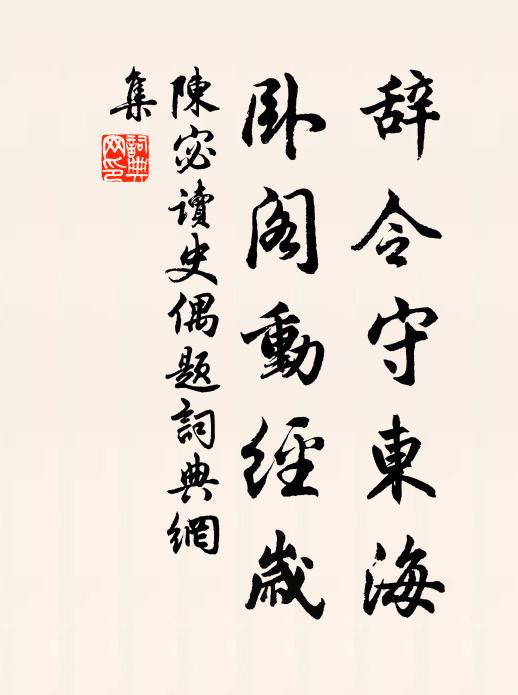 辞令守東海
卧阁動經歲
陳宓讀史偶題詞典網
集
詞典網印